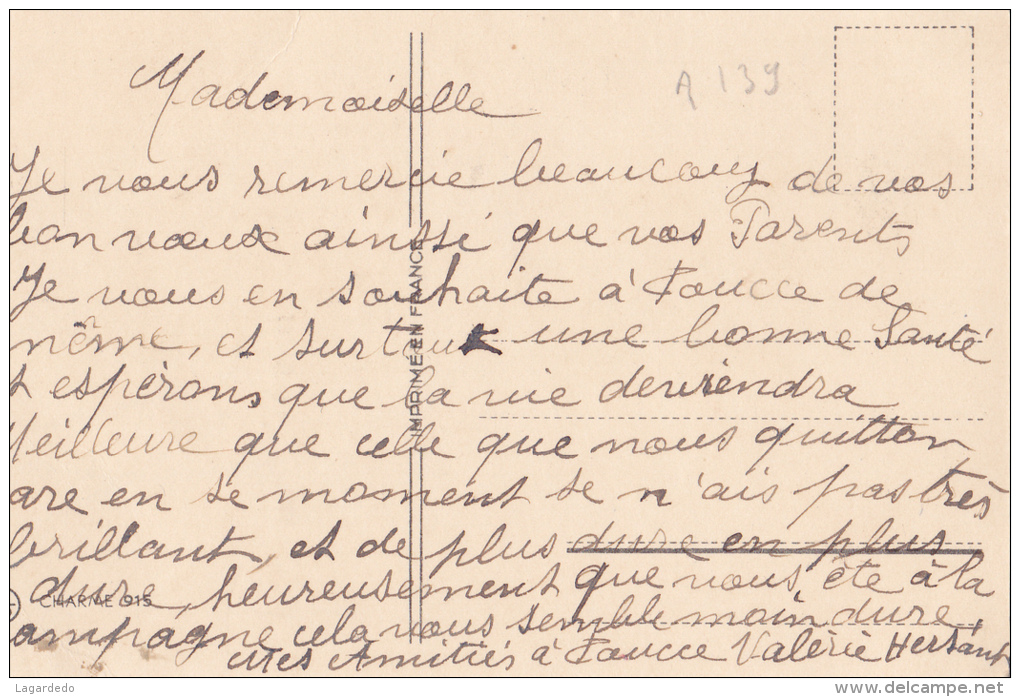 A 139
Mademoiselle
Je vous remercie beaucoup de vos
bon vœux ainssi que vos Parents
Je vous en souhaite à toucce de
même, et surtout une bonne Santé
et espèrons que la vie deviendra
Meilleure que celle que nous quitton
care en se moment se n'ais pas très
brillant, et de plus dure en plus
dure, heureusement que vous ête à la
campagne cela vous semble moin dure,
Mes Amitiés à toucce Valérie Hersant
IMPRIMÉ EN FRANCE
CHARME 915
Lagardedo
www.delcampe.net